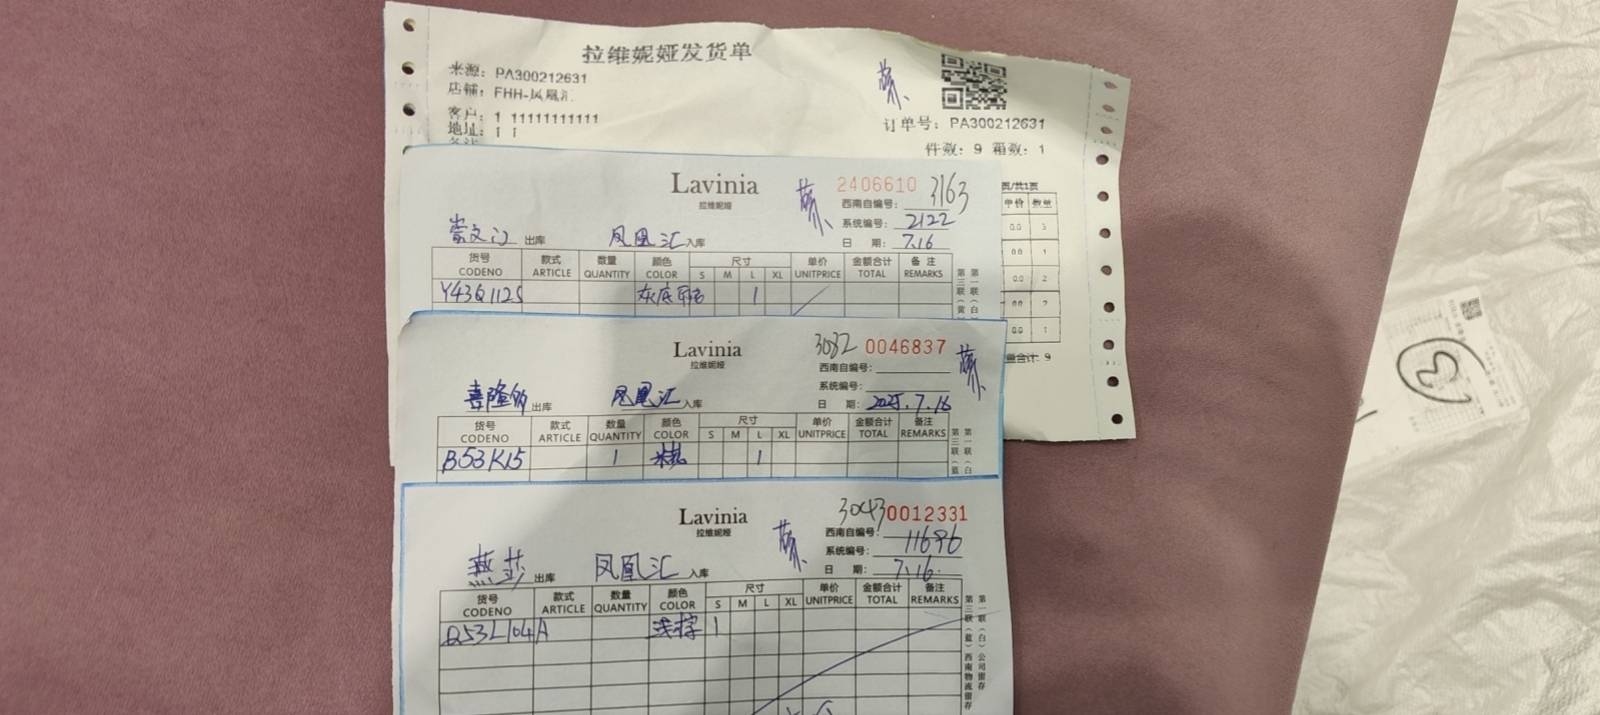 拉维妮娅发货单
来源: PA300212631
店铺: FHH-凤凰汇
客户: 1 11111111111
地址: 1 1
订单号: PA300212631
件数: 9 箱数: 1
页/共1页
单价 数量
0.0 3
0.0 1
0.0 2
0.0 2
0.0 1
量合计: 9
Lavinia
拉维妮娅
2406610 3163
西南自编号:
系统编号: 2122
日 期: 7.16
崇文门 出库 凤凰汇 入库
货号 款式 数量 颜色 尺寸 单价 金额合计 备注
CODENO ARTICLE QUANTITY COLOR S M L XL UNITPRICE TOTAL REMARKS
Y43Q1125 灰底 1
第一联(白
第三联(黄
Lavinia
拉维妮娅
3082 0046837
西南自编号:
系统编号:
日 期: 2025.7.16
喜隆多 出库 凤凰汇 入库
货号 款式 数量 颜色 尺寸 单价 金额合计 备注
CODENO ARTICLE QUANTITY COLOR S M L XL UNITPRICE TOTAL REMARKS
B53K15 1 1
第一联(白
第三联(蓝
Lavinia
拉维妮娅
3043 0012331
西南自编号:
系统编号: 11696
日 期: 7.16.
燕莎 出库 凤凰汇 入库
货号 款式 数量 颜色 尺寸 单价 金额合计 备注
CODENO ARTICLE QUANTITY COLOR S M L XL UNITPRICE TOTAL REMARKS
Q53L104A 浅棕 1
第一联(白)公司留存
第三联(蓝)西南物流留存
3